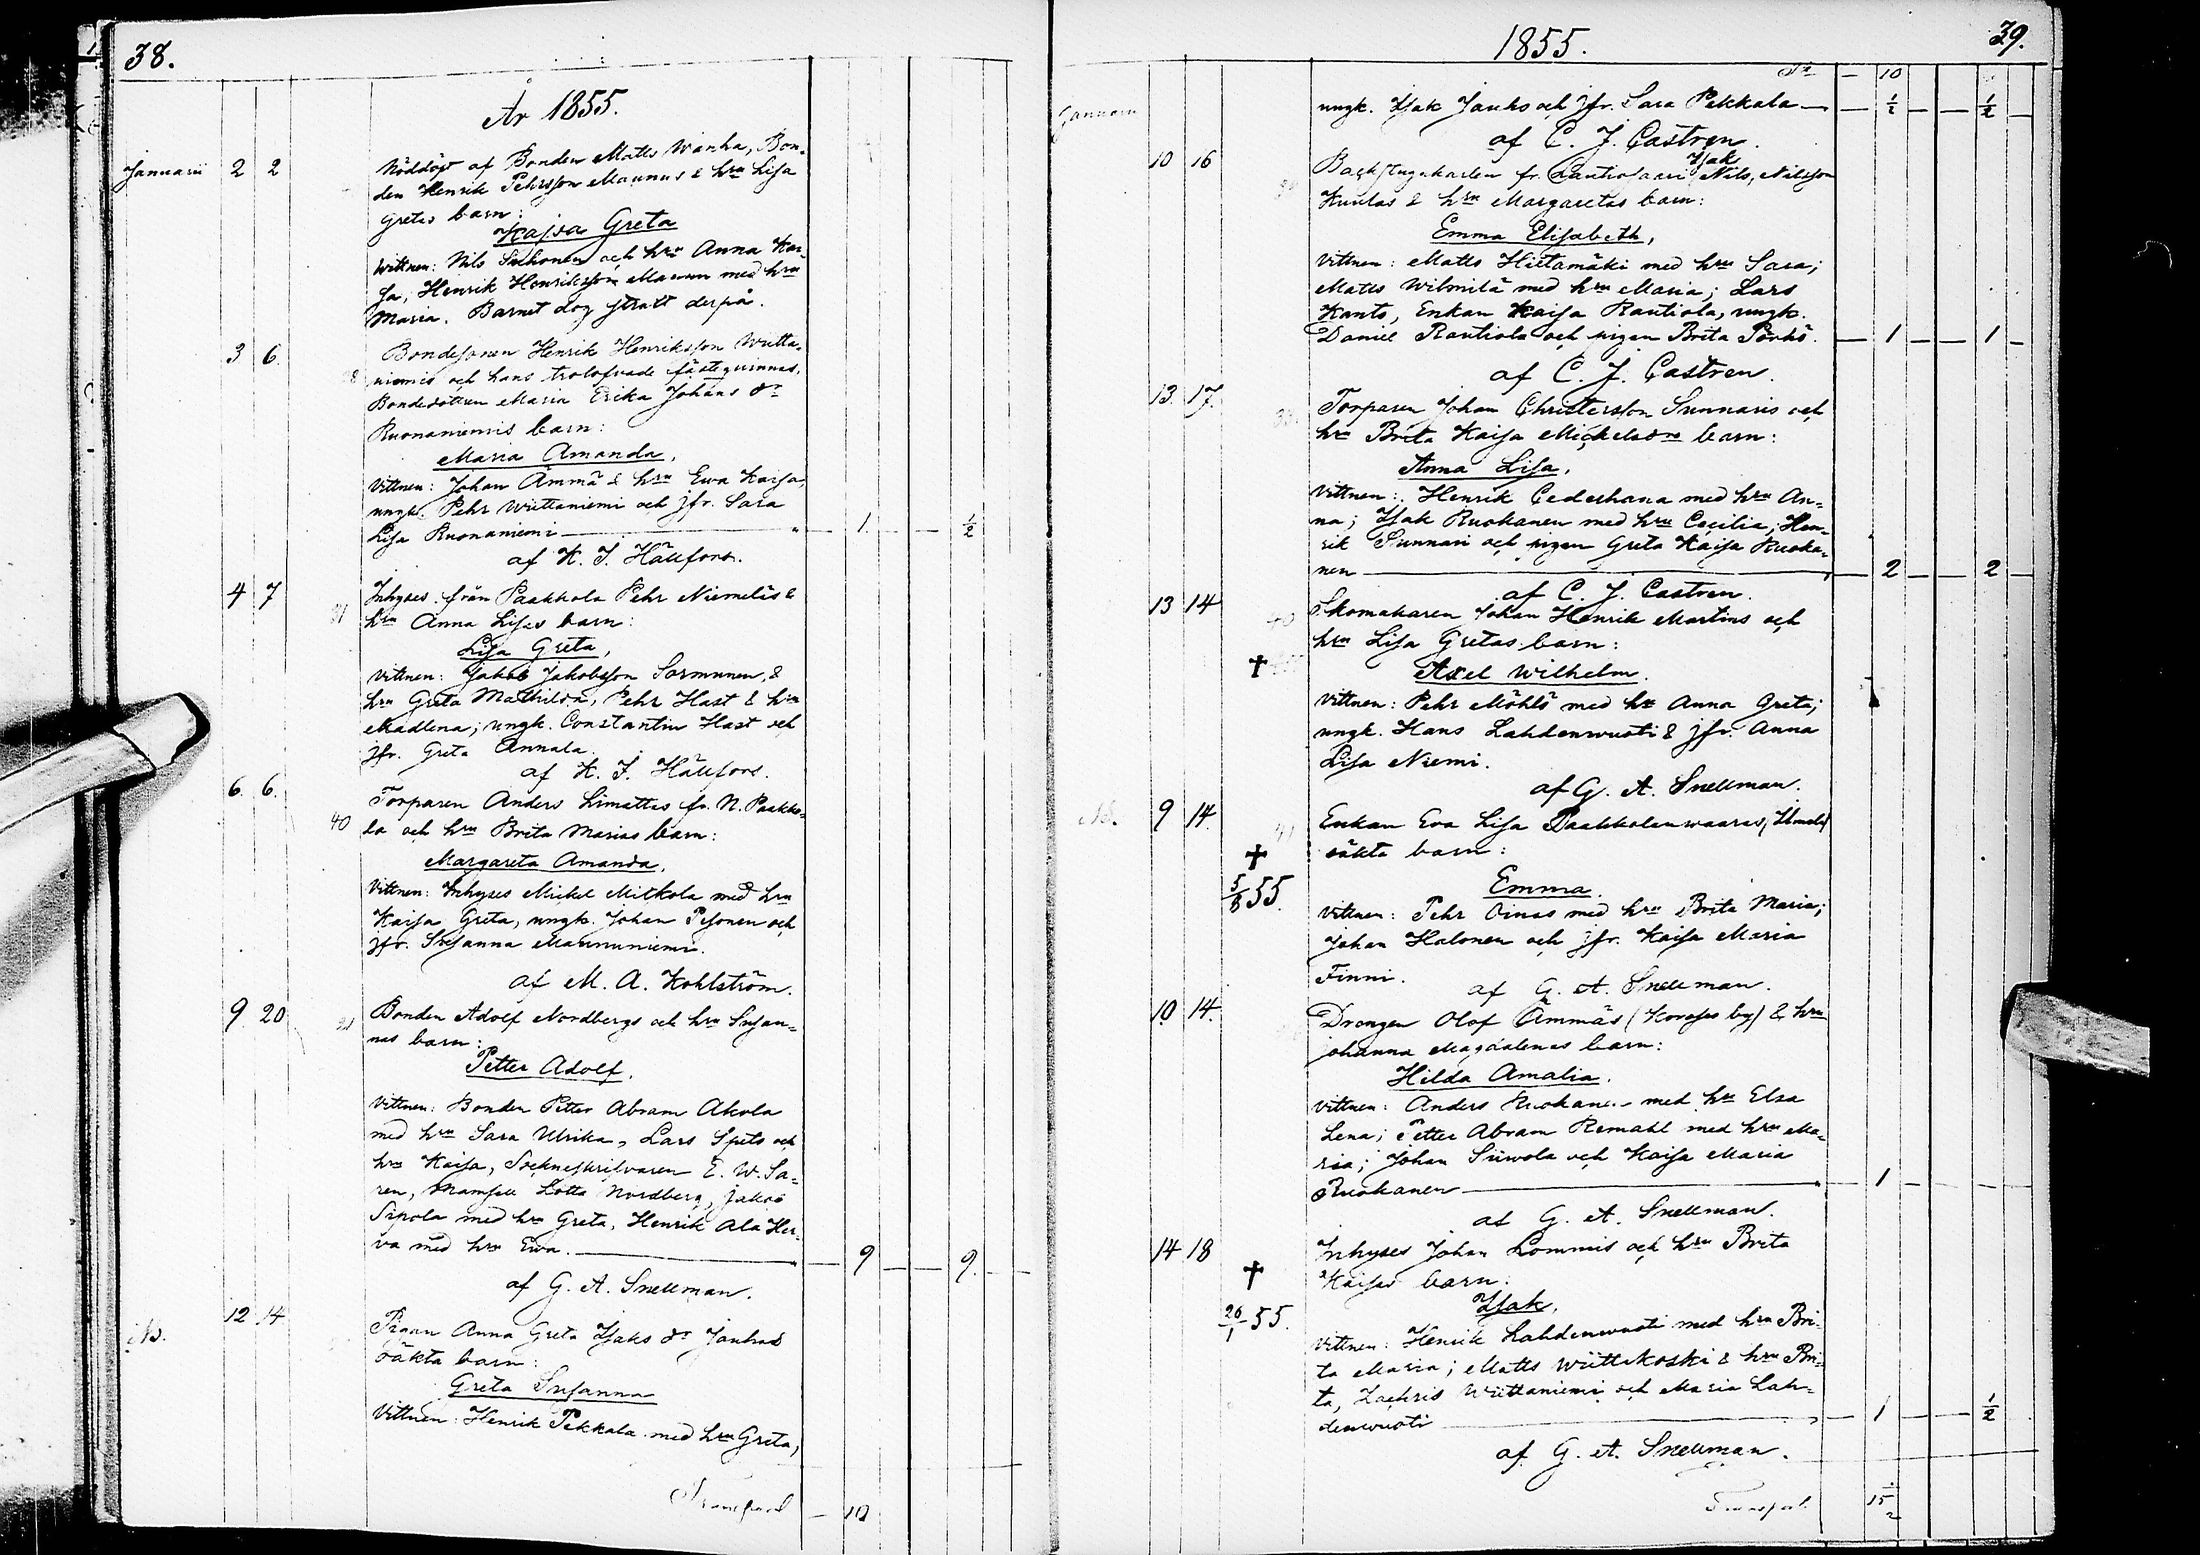 38.
År 1855.
Januarii 2 2 Nöddöpt af Bonden Matts Wanha, Bon-
den Henrik Pehrsson Maunus & hru Lisa
Gretes barn:
Kajsa Greta
Vittnen: Nils Seehonen och hru Anna Kai-
sa, Henrik Henriksson Maunu med hru
Maria. Barnet dog straxt derpå.
3 6. Bondesonen Henrik Henriksson Wiitta-
niemis och hans trolofvade fästeqvinnas,
Bondedottren Maria Erika Johans dr
Ruonaniemis barn:
Maria Amanda,
Vittnen: Johan Ämmä & hru Ewa Kaisa,
ungk. Pehr Wiittaniemi och jfr. Sara
Lisa Ruonaniemi " 1. ½
af K. F. Hällfors.
4 7 31 Inhyses från Paakkola Pehr Niemeläs &
hru Anna Lisas barn:
Lisa Greta,
Vittnen: Jakob Jakobsson Sormunen, &
hru Greta Mathilda, Pehr Hast & hru
Madlena; ungk. Constantin Hast och
jfr. Greta Annala.
af K. F. Hällfors.
6. 6. 40 Torparen Anders Limattas fr. N. Paakko-
la och hru Brita Marias barn:
Margareta Amanda,
Vittnen: Inhyses Mickel Mitkola med hru
Kaisa Greta, ungk. Johan Pesonen och
jfr. Susanna Maununiemi.
af M. A. Kohlström.
9. 20 Bonden Adolf Nordbergs och hru Susan-
nas barn:
Petter Adolf.
Vittnen: Bonden Petter Abram Akola
med hru Sara Ulrika, Lars Spets och
hru Kaisa, Socknescrifvaren E. W. Sa-
ren, Mamsell Lotta Nordberg, Jakob
Sipola med hru Greta, Henrik Ala Her-
va med hru Ewa. 9 9.
af G. A. Snellman.
No. 12 14 Pigan Anna Greta Isaks dr Jauhos
oäkta barn:
Greta Susanna
Vittnen: Henrik Pekkala med hru Greta,
Transport 10
1855. 39.
Tr 10
Januarii ungk. Isak Jauho och jfr. Sara Pekkala ½ ½
af C. J. Castren.
10 16 Backstugukarlen fr. Lautiosaari Isak Nils, Nilsson
Kuulas & hru Margaretas barn:
Emma Elisabeth,
Vittnen: Matts Hietamäki med hru Sara;
Matts Wilmilä med hru Maria; Lars
Kanto, Enkan Kaisa Rautiola, ungk.
Daniel Rautiola och pigan Brita Pörhö. 1 1
af C. J. Castren.
13. 17. Torparen Johan Christersson Sunnaris och
hru Brita Kaisa Mickelsdrs barn:
Anna Lisa,
Vittnen: Henrik Cederhana med hru An-
na; Isak Ruokanen med hru Cecilia; Hen-
rik Sunnari och pigan Greta Kaisa Ruoka-
nen 2 2
af C. J. Castren.
13 14 Skomakaren Johan Henrik Martins och
hru Lisa Gretas barn:
† Axel Wilhelm.
Vittnen: Pehr Möhlö med hr Anna Greta;
ungk. Hans Lahdenwuoti & jfr. Anna
Lisa Niemi.
af G. A. Snellman.
No. 9 14. 41 Enkan Eva Lisa Paakkolanwaaras,
† oäkta barn:
5/8 55. Emma.
Vittnen: Pehr Oinas med hru Brita Maria;
Johan Halonen och jfr. Kaisa Maria
Finni.
af G. A. Snellman.
10. 14. Drängen Olof Ämmäs (Korofas by) & hru
Johanna Magdalenas barn:
Hilda Amalia.
Vittnen: Anders Ruokanen med hru Elsa
Lena; Petter Abram Remahl med hru Ma-
ria; Johan Siiwola och Kaisa Maria
Ruokanen 1
af G. A. Snellman.
14 18 Inhyses Johan Lommis och hru Brita
† Kaisas barn:
26/1 55. Isak,
Vittnen: Henrik Lahdenwuoti med hru Bri-
ta Maria; Matts Wiittakoski & hru Bri-
ta, Zachris Wiittaniemi och Maria Lah-
denwuoti 1 ½
af G. A. Snellman.
Transport 15 ½